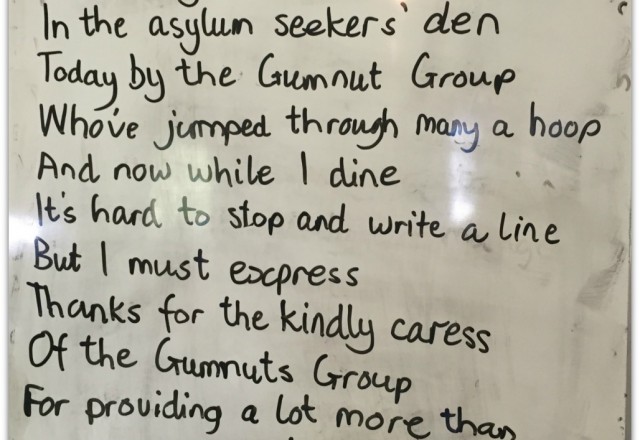 In the asylum seekers' den
Today by the Gumnut Group
Who've jumped through many a hoop
And now while I dine
It's hard to stop and write a line
But I must express
Thanks for the kindly caress
Of the Gumnuts Group
For providing a lot more than